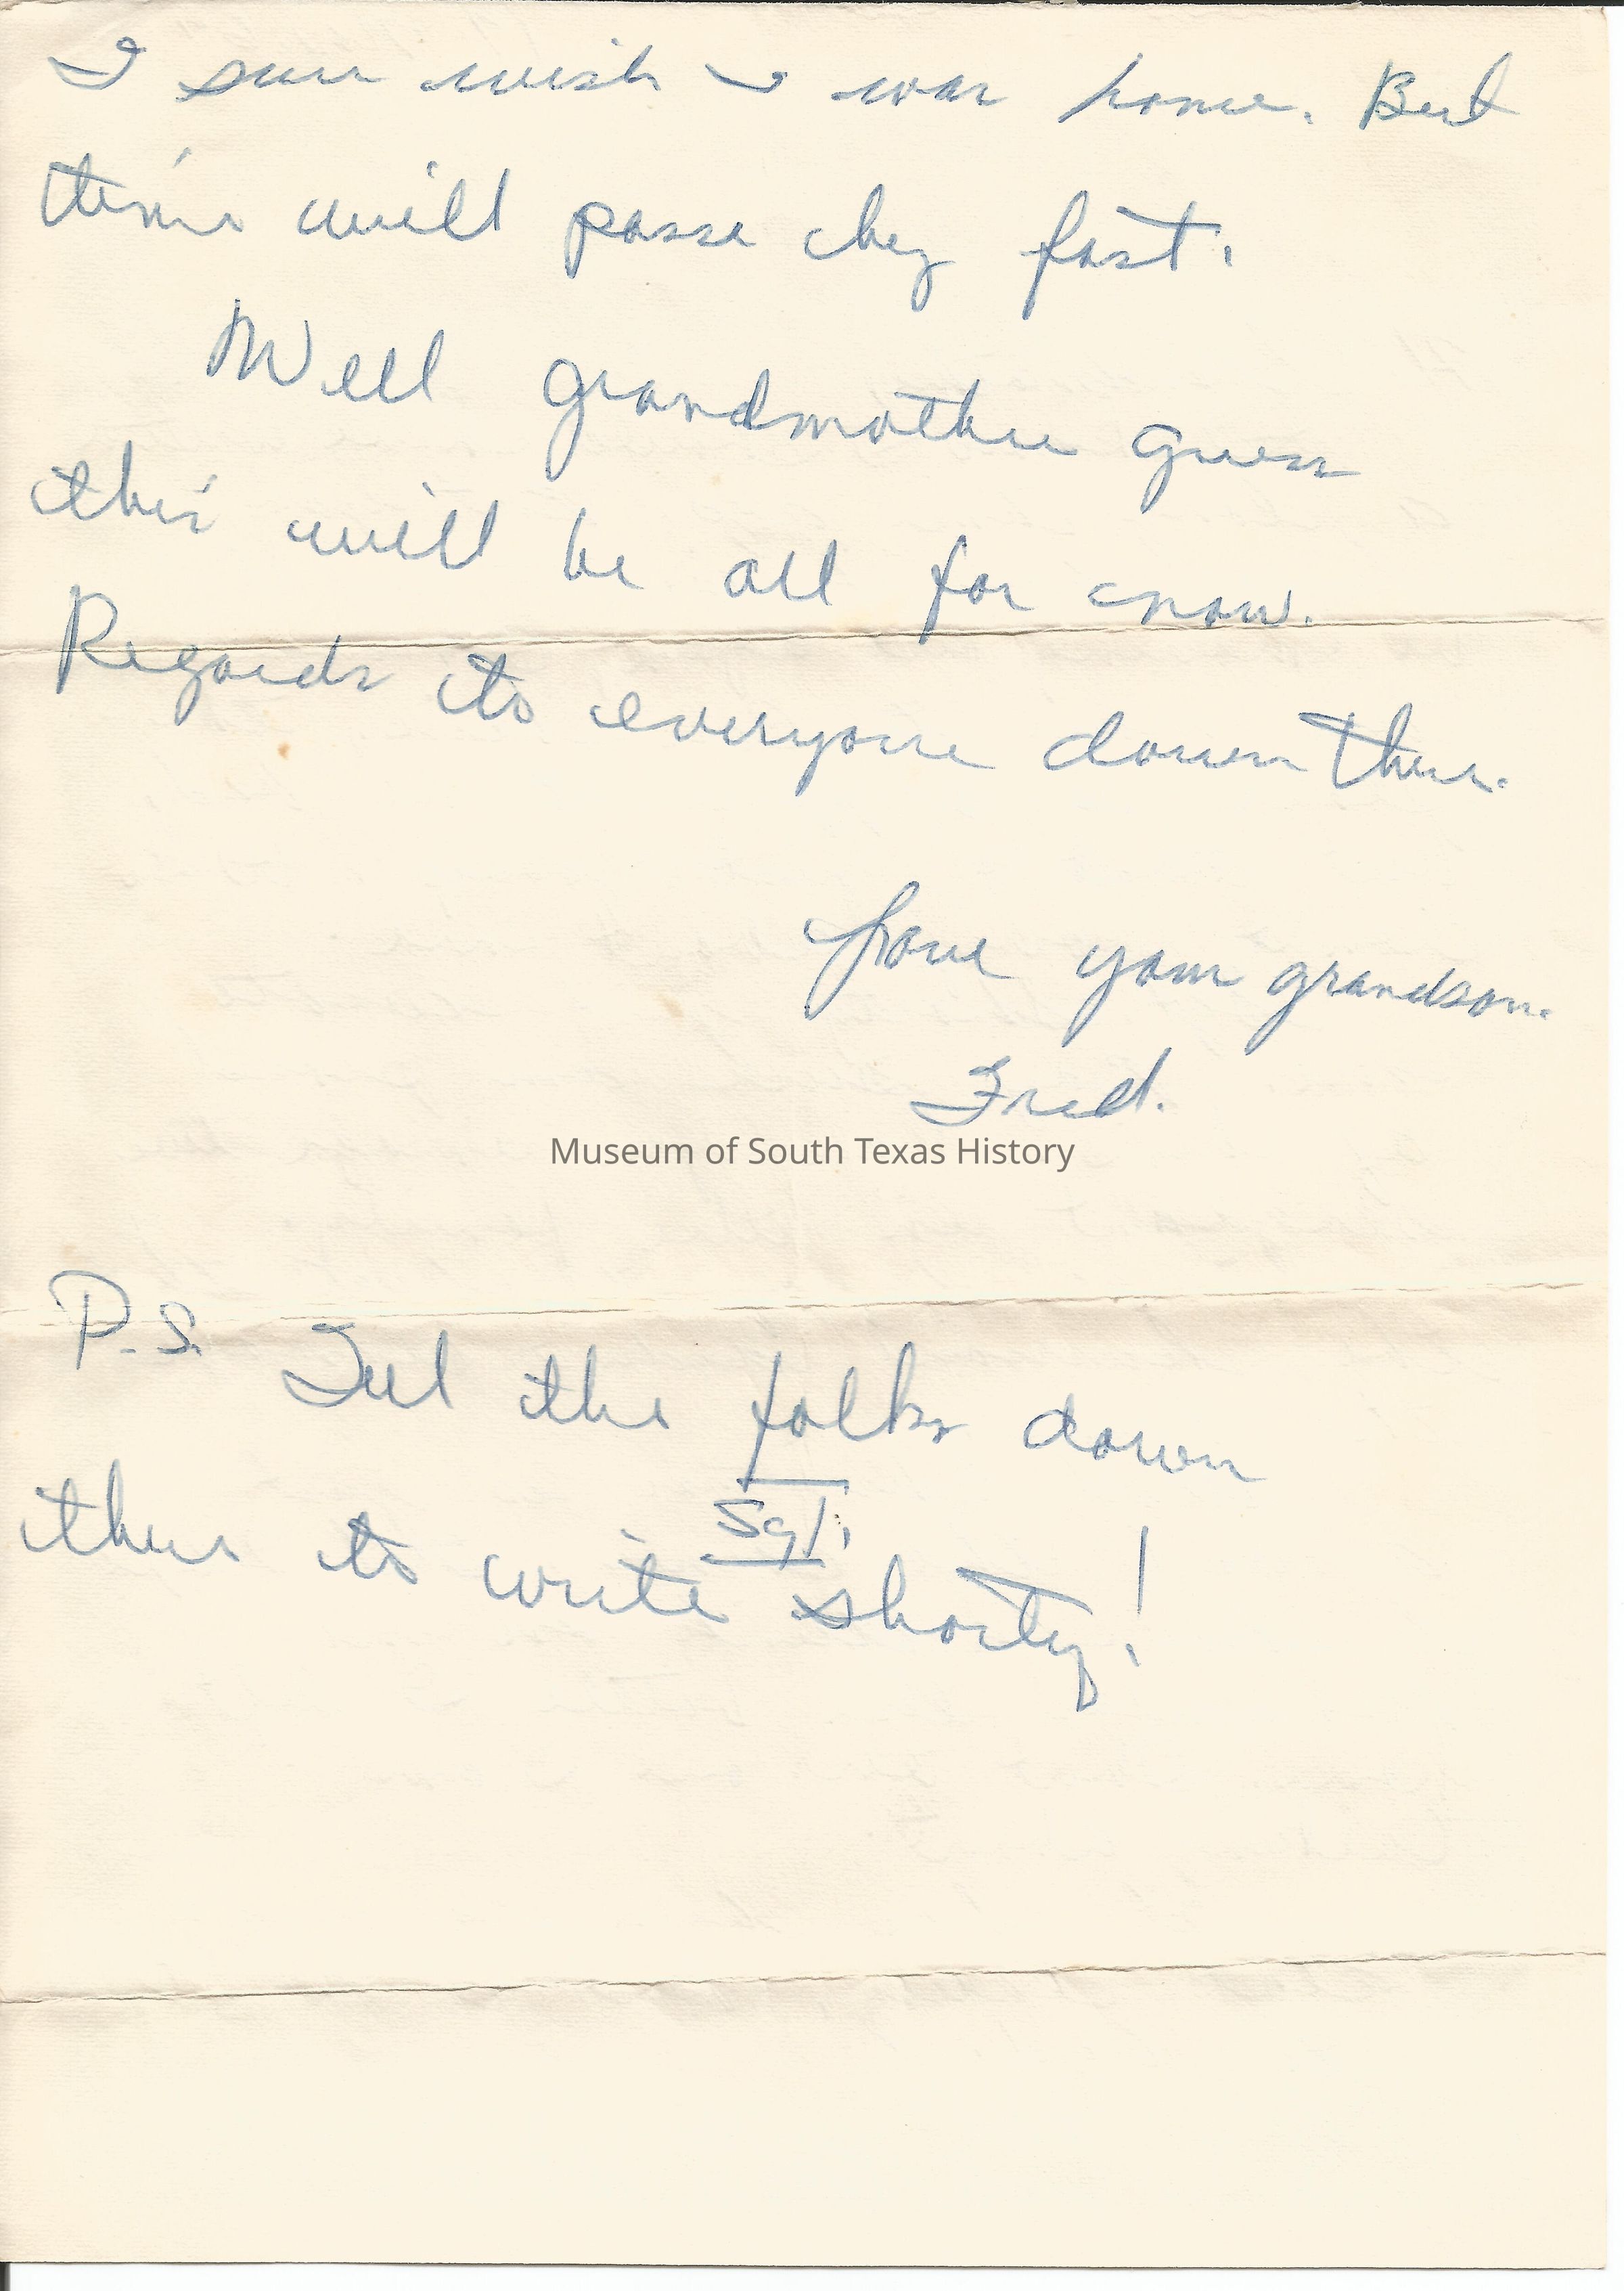 I sure wish I was home. But
time will passe by fast.
Well grandmother guess
this will be all for now.
Regards to everyone down there.
Love your grandson.
Fred.
Museum of South Texas History
P.S. Tell the folks down
there to write Sgt. shorty!